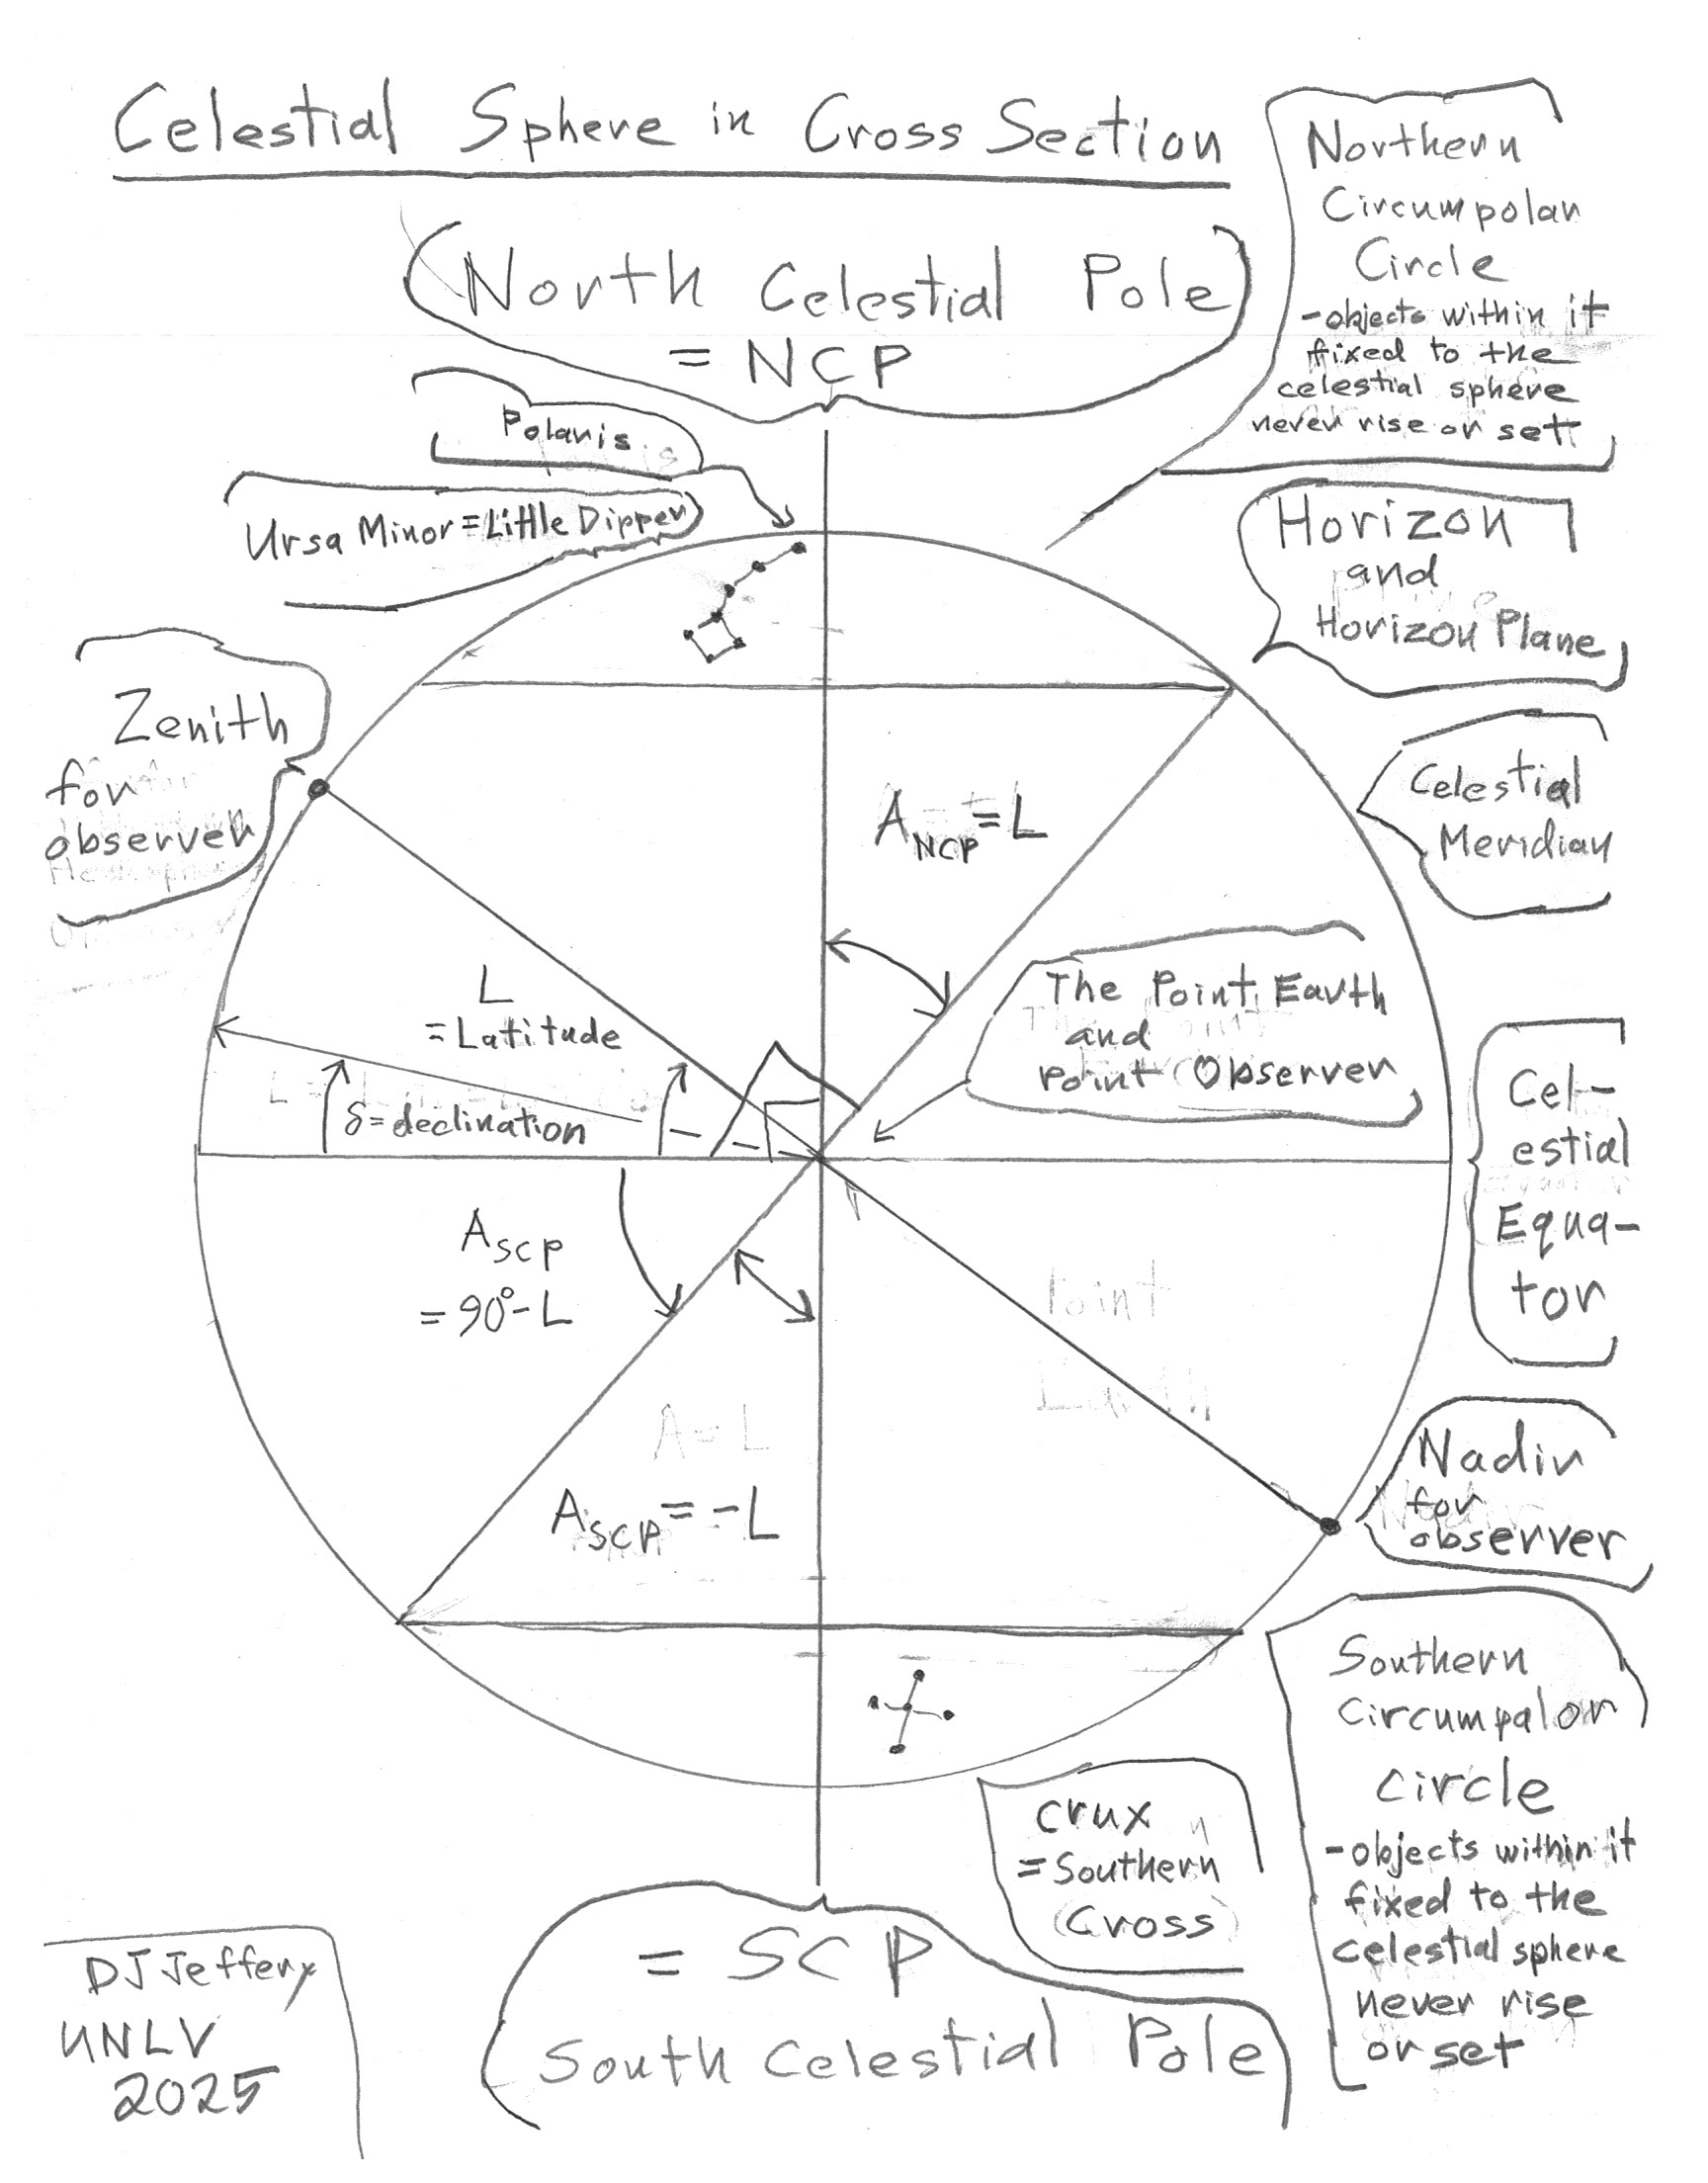 Celestial Sphere in Cross Section
(North Celestial Pole)
= NCP
Northern
Circumpolar
Circle
-objects within it
fixed to the
celestial sphere
never rise or set
Polaris
Ursa Minor = Little Dipper
Horizon
and
Horizon Plane
Zenith
for
observer
Celestial
Meridian
A NCP = L
L
= Latitude
The Point Earth
and
Point Observer
δ = declination
Cel-
estial
Equa-
tor
A SCP
= 90° - L
A SCP = -L
Nadir
for
observer
Southern
Circumpolar
Circle
-objects within it
fixed to the
celestial sphere
never rise
or set
Crux
= Southern
(Cross)
= SCP
South Celestial Pole
DJ Jeffery
UNLV
2025